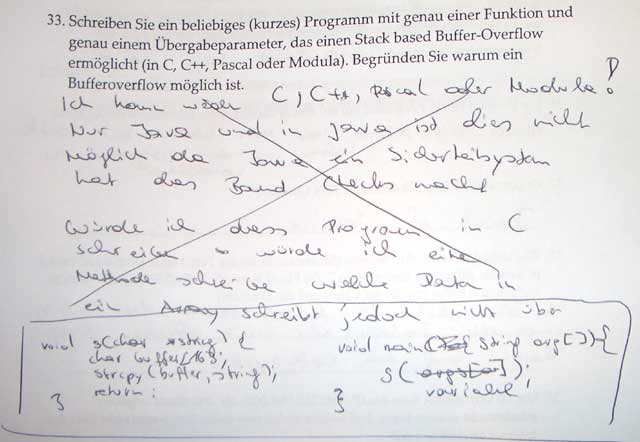 33. Schreiben Sie ein beliebiges (kurzes) Programm mit genau einer Funktion und
genau einem Übergabeparameter, das einen Stack based Buffer-Overflow
ermöglicht (in C, C++, Pascal oder Modula). Begründen Sie warum ein
Bufferoverflow möglich ist.
Ich kann weder C, C++, Pascal oder Modula!
Nur Java und in Java ist dies nicht
möglich da Java ein Sicherheitsystem
hat das Checks macht
Würde ich dass Programm in C
schreiben würde ich eine
Methode schreibe welche Daten in
ein Array schreibt jedoch nicht über
void g(char *string) {
char buffer[16];
strcpy(buffer, string);
return;
}
void main( String arg[]){
g(
variable;
}